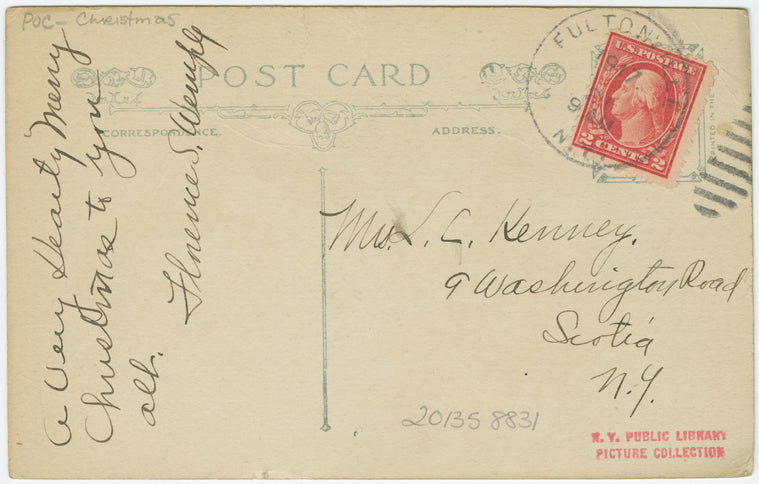 POC - Christmas
POST CARD
CORRESPONDENCE.
ADDRESS.
A Very Hearty Merry
Christmas to you
all.
Florence S. Wemple
FULTON
N.Y.
U.S. POSTAGE
2 CENTS 2
PRINTED IN THE
Mrs. L. C. Kenney.
9 Washington Road
Scotia
N.Y.
20135 8831
N.Y. PUBLIC LIBRARY
PICTURE COLLECTION